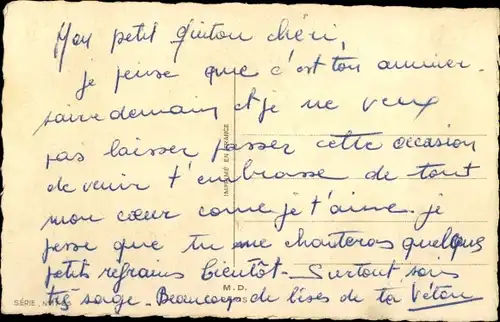 Mon petit quiton chéri,
je pense que c'est ton anniver-
saire demain et je ne veux
pas laisser passer cette occasion
de venir t'embrasse de tout
mon cœur come je t'aime. je
pesse que tu me chanteras quelques
petits refrains bientôt. Surtout sois
très sage. Beaucoup de bises de ta Véton
IMPRIMÉ EN FRANCE
M. D.
SÉRIE